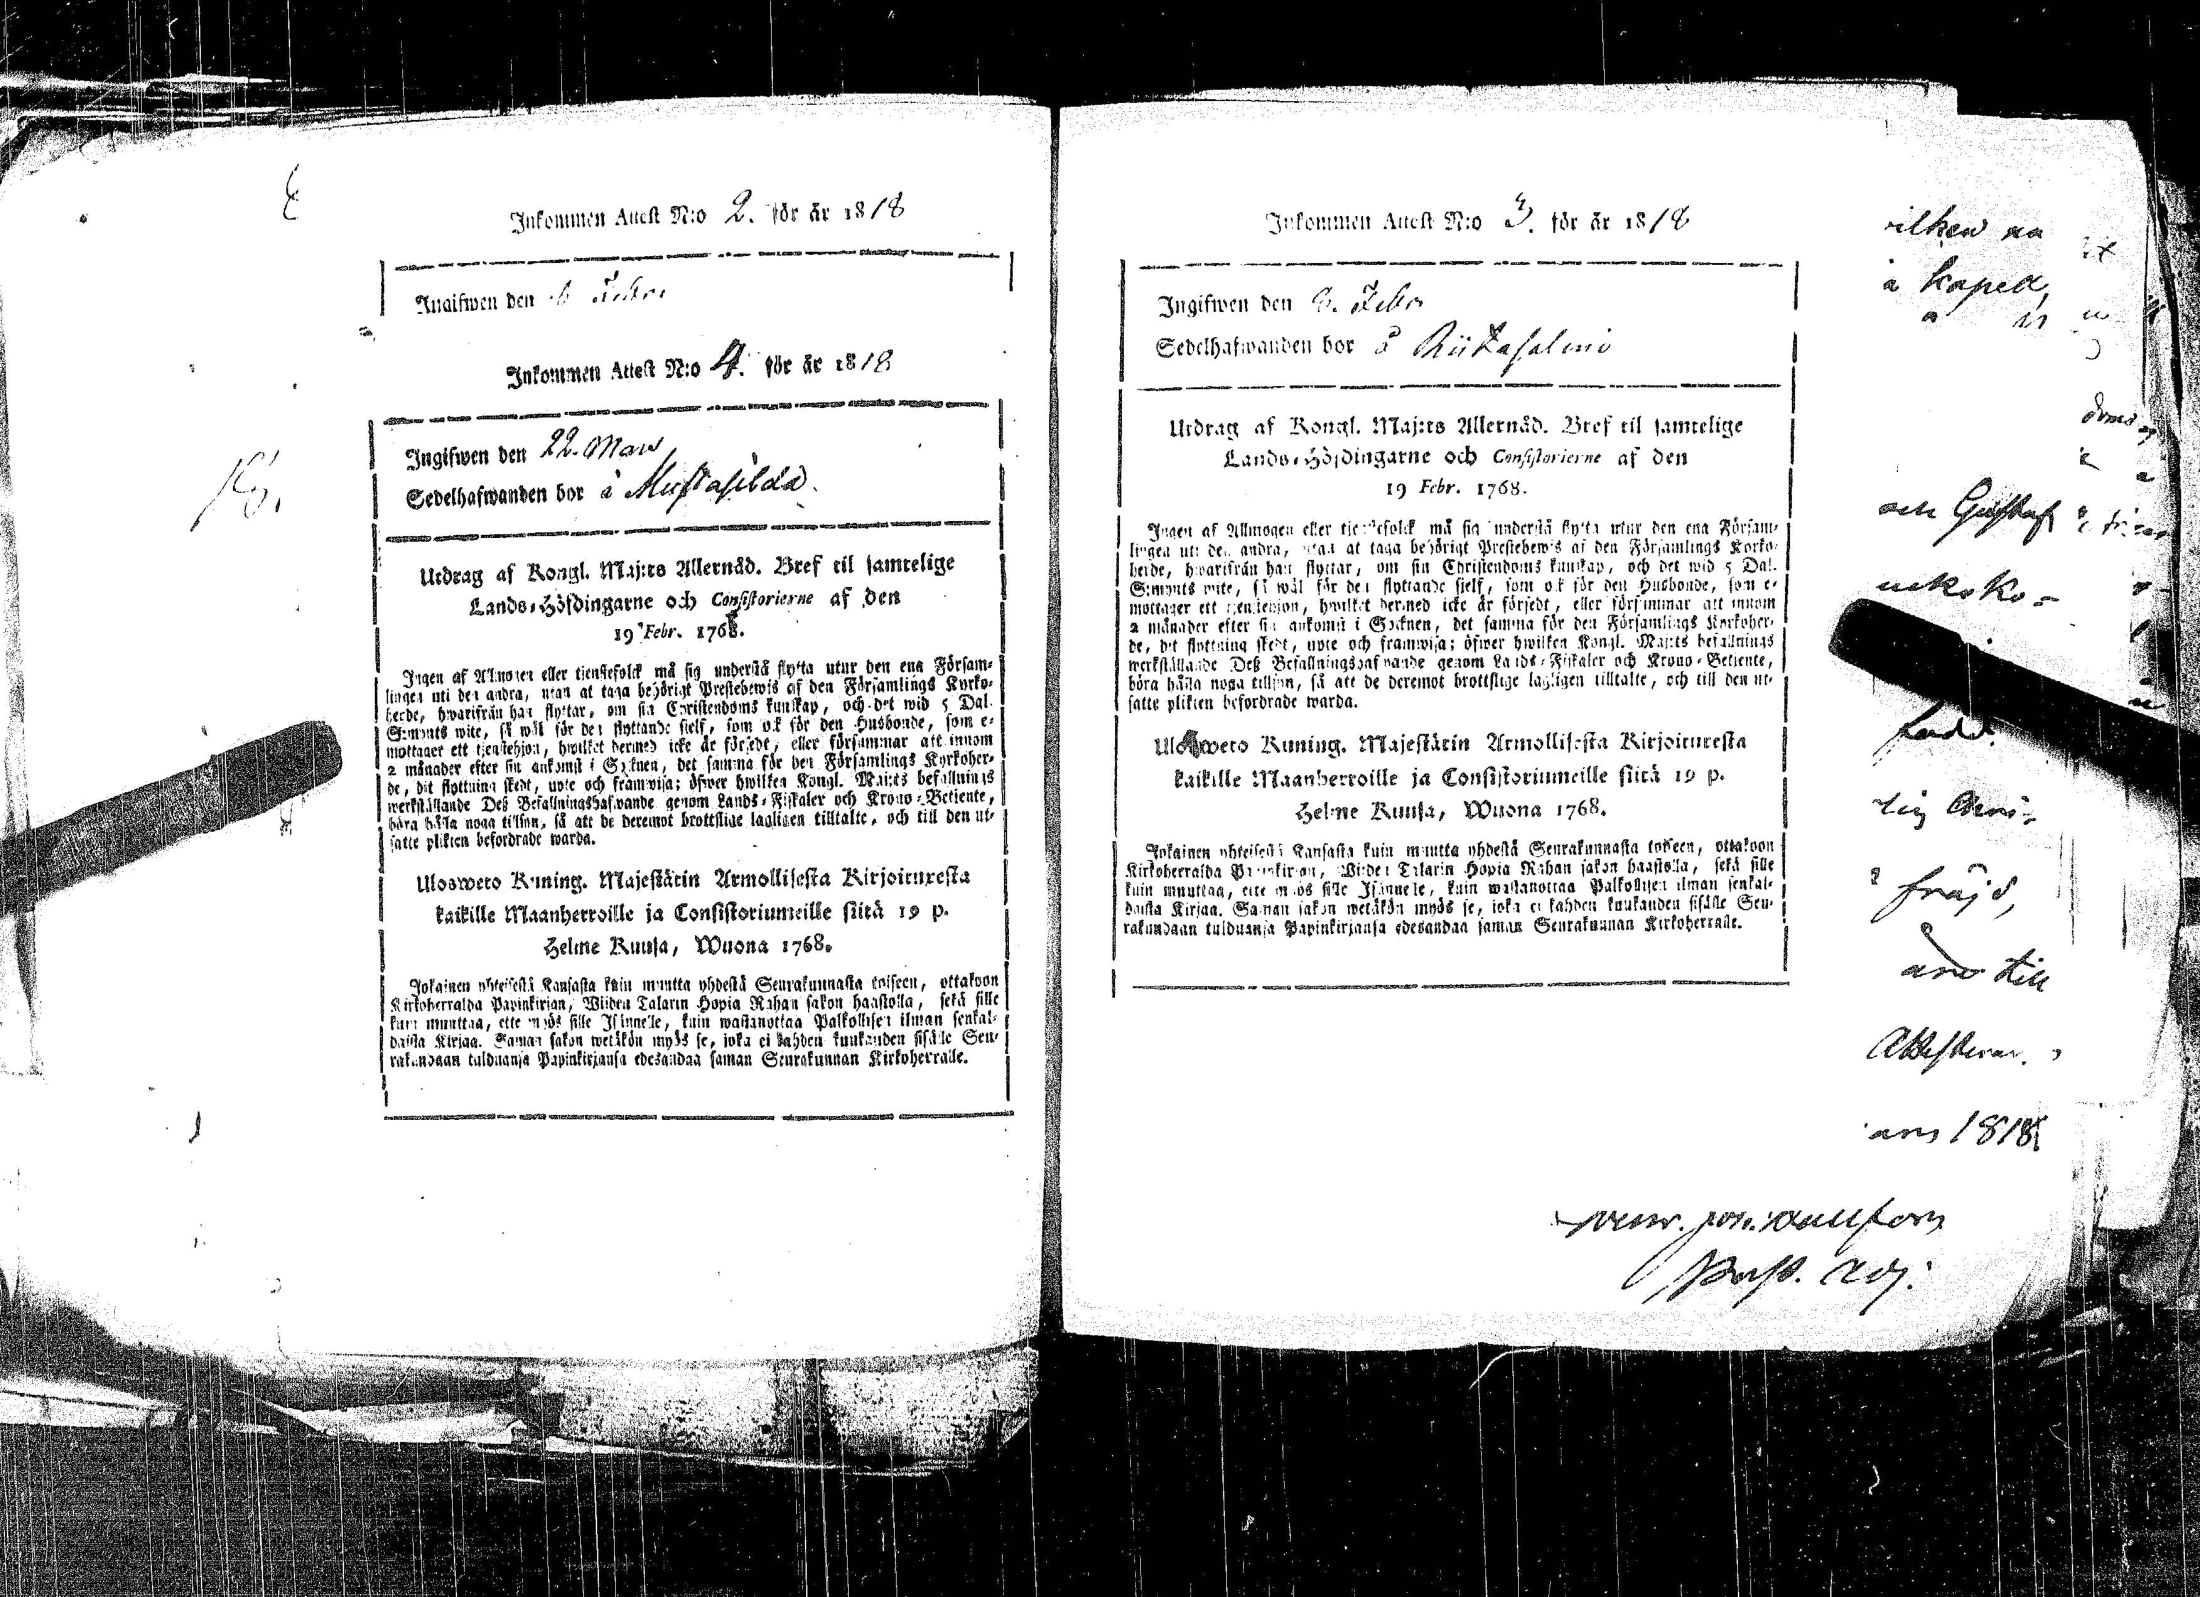 Inkommen Attest N:o 2. för år 1818
Ingifwen den 6 Febr.
Inkommen Attest N:o 4. för år 1818
Ingifwen den 22. Mars
Sedelhafwanden bor å Mustasilda.
Utdrag af Kongl. Maj:ts Allernåd. Bref til samtelige
Lands-Höfdingarne och Consistorierne af den
19 Febr. 1768.
Ingen af Allmogen eller tjenstefolck må sig understå flytta utur den ena Försam-
lingen uti den andra, utan at taga behörigt Prestebewis af den Församlings Kyrko-
herde, hwarifrån han flyttar, om sin Christendoms kunskap, och det wid 5 Dal.
S:mynts wite, så wäl för den flyttande sielf, som ock för den Husbonde, som e-
mottager ett tjenstehjon, hwilket dermed icke är försedt, eller försummar att innom
2 månader efter sin ankomst i Socknen, det samma för den Församlings Kyrkoher-
de, dit flyttning skedt, upte och framwisa; öfwer hwilken Kongl. Maj:ts befallnings
werkställande Deß Befallningshafwande genom Lands-Fiskaler och Krono-Betjente,
böra hålla noga tillsyn, så att de deremot brottslige lagligen tilltalte, och till den ut-
satte plikten befordrade warda.
Ulosweto Kuning. Majestätin Armollisesta Kirjoituxesta
kaikille Maanherroille ja Consistoriumeille siitä 19 p.
Helme Kuusa, Wuona 1768.
Jokainen yhteisestä Kansasta kuin muutta yhdestä Seurakunnasta toiseen, ottakoon
Kirkoherralda Papinkirjan, Wiiden Talarin Hopia Rahan sakon haastolla, sekä sille
kuin muuttaa, ette myös sille Isännelle, kuin wastanottaa Palkollisen ilman senkal-
daista Kirjaa. Saman sakon wetäkön myös se, joka ei kahden kuukauden sisälle Seu-
rakundaan tulduansa Papinkirjansa edesandaa saman Seurakunnan Kirkoherralle.
Inkommen Attest N:o 3. för år 1818
Ingifwen den 8. Febr
Sedelhafwanden bor å Riikasalmi
Utdrag af Kongl. Maj:ts Allernåd. Bref til samtelige
Lands-Höfdingarne och Consistorierne af den
19 Febr. 1768.
Ingen af Allmogen eller tjenstefolck må sig understå flytta utur den ena Försam-
lingen uti den andra, utan at taga behörigt Prestebewis af den Församlings Kyrko-
herde, hwarifrån han flyttar, om sin Christendoms kunskap, och det wid 5 Dal.
S:mynts wite, så wäl för den flyttande sielf, som ock för den Husbonde, som e-
mottager ett tjenstehjon, hwilket dermed icke är försedt, eller försummar att innom
2 månader efter sin ankomst i Socknen, det samma för den Församlings Kyrkoher-
de, dit flyttning skedt, upte och framwisa; öfwer hwilken Kongl. Maj:ts befallnings
werkställande Deß Befallningshafwande genom Lands-Fiskaler och Krono-Betjente,
böra hålla noga tillsyn, så att de deremot brottslige lagligen tilltalte, och till den ut-
satte plikten befordrade warda.
Ulosweto Kuning. Majestätin Armollisesta Kirjoituxesta
kaikille Maanherroille ja Consistoriumeille siitä 19 p.
Helme Kuusa, Wuona 1768.
Jokainen yhteisestä Kansasta kuin muutta yhdestä Seurakunnasta toiseen, ottakoon
Kirkoherralda Papinkirjan, Wiiden Talarin Hopia Rahan sakon haastolla, sekä sille
kuin muuttaa, ette myös sille Isännelle, kuin wastanottaa Palkollisen ilman senkal-
daista Kirjaa. Saman sakon wetäkön myös se, joka ei kahden kuukauden sisälle Seu-
rakundaan tulduansa Papinkirjansa edesandaa saman Seurakunnan Kirkoherralle.
ilken
å kapell
och Gustaf
född
lig Chri-
fräjd,
till
Attesterar.
1818
Past. adj: